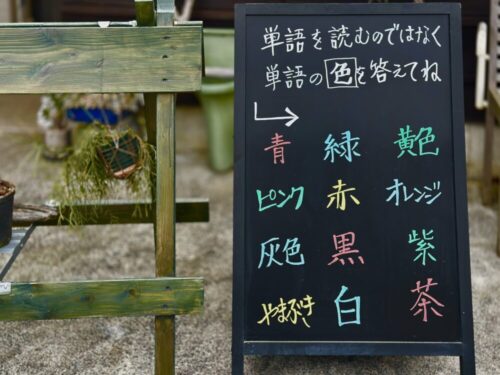 単語を読むのではなく
単語の色を答えてね
青 緑 黄色
ピンク 赤 オレンジ
灰色 黒 紫
やまぶき 白 茶